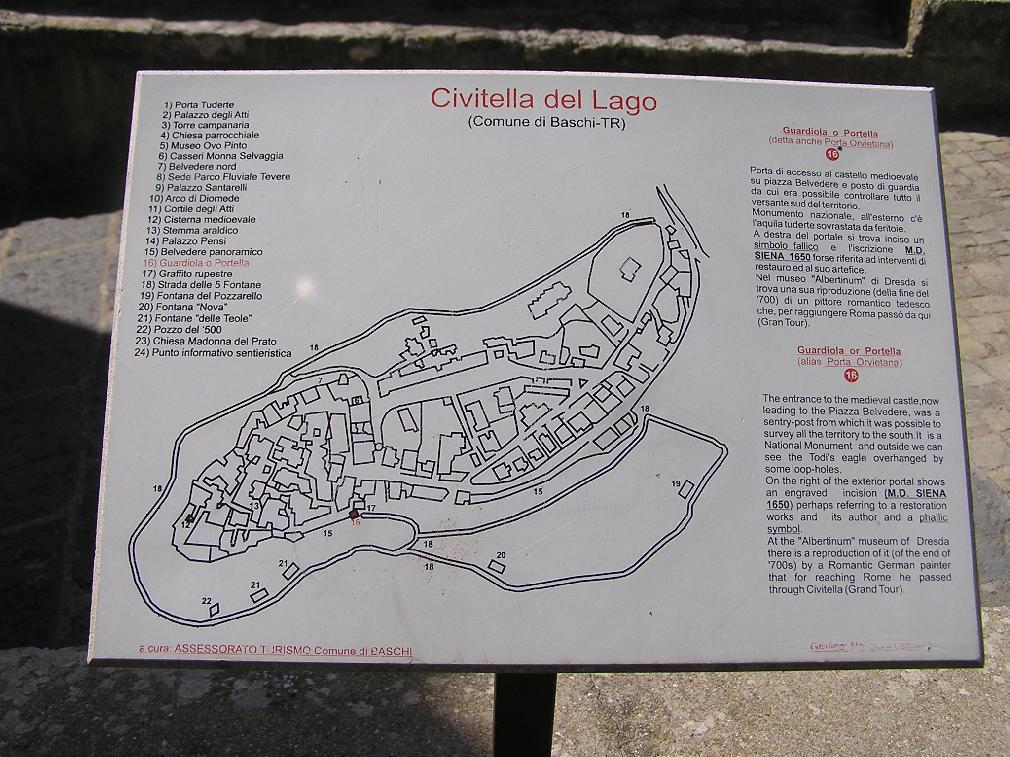 Civitella del Lago
(Comune di Baschi-TR)
1) Porta Tuderte
2) Palazzo degli Atti
3) Torre campanaria
4) Chiesa parrocchiale
5) Museo Ovo Pinto
6) Casseri Monna Selvaggia
7) Belvedere nord
8) Sede Parco Fluviale Tevere
9) Palazzo Santarelli
10) Arco di Diomede
11) Cortile degli Atti
12) Cisterna medioevale
13) Stemma araldico
14) Palazzo Pensi
15) Belvedere panoramico
16) Guardiola o Portella
17) Graffito rupestre
18) Strada delle 5 Fontane
19) Fontana del Pozzarello
20) Fontana "Nova"
21) Fontane "delle Teole"
22) Pozzo del '500
23) Chiesa Madonna del Prato
24) Punto informativo sentieristica
Guardiola o Portella
(detta anche Porta Orvietana)
16
Porta di accesso al castello medioevale
su piazza Belvedere e posto di guardia
da cui era possibile controllare tutto il
versante sud del territorio.
Monumento nazionale, all'esterno c'è
l'aquila tuderte sovrastata da feritoie.
A destra del portale si trova inciso un
simbolo fallico e l'iscrizione M.D.
SIENA 1650 forse riferita ad interventi di
restauro ed al suo artefice.
Nel museo "Albertinum" di Dresda si
trova una sua riproduzione (della fine del
'700) di un pittore romantico tedesco
che, per raggiungere Roma passò da qui
(Gran Tour).
Guardiola or Portella
(alias Porta Orvietana)
16
The entrance to the medieval castle,now
leading to the Piazza Belvedere, was a
sentry-post from which it was possible to
survey all the territory to the south.It is a
National Monument and outside we can
see the Todi's eagle overhanged by
some oop-holes.
On the right of the exterior portal shows
an engraved incision (M.D. SIENA
1650) perhaps referring to a restoration
works and its author and a phallic
symbol.
At the "Albertinum" museum of Dresda
there is a reproduction of it (of the end of
'700s) by a Romantic German painter
that for reaching Rome he passed
through Civitella (Grand Tour).
18
18
7
18
18
19
15
17
16
13
12
15
18
18
20
21
21
22
a cura: ASSESSORATO TURISMO Comune di BASCHI
Grafica: